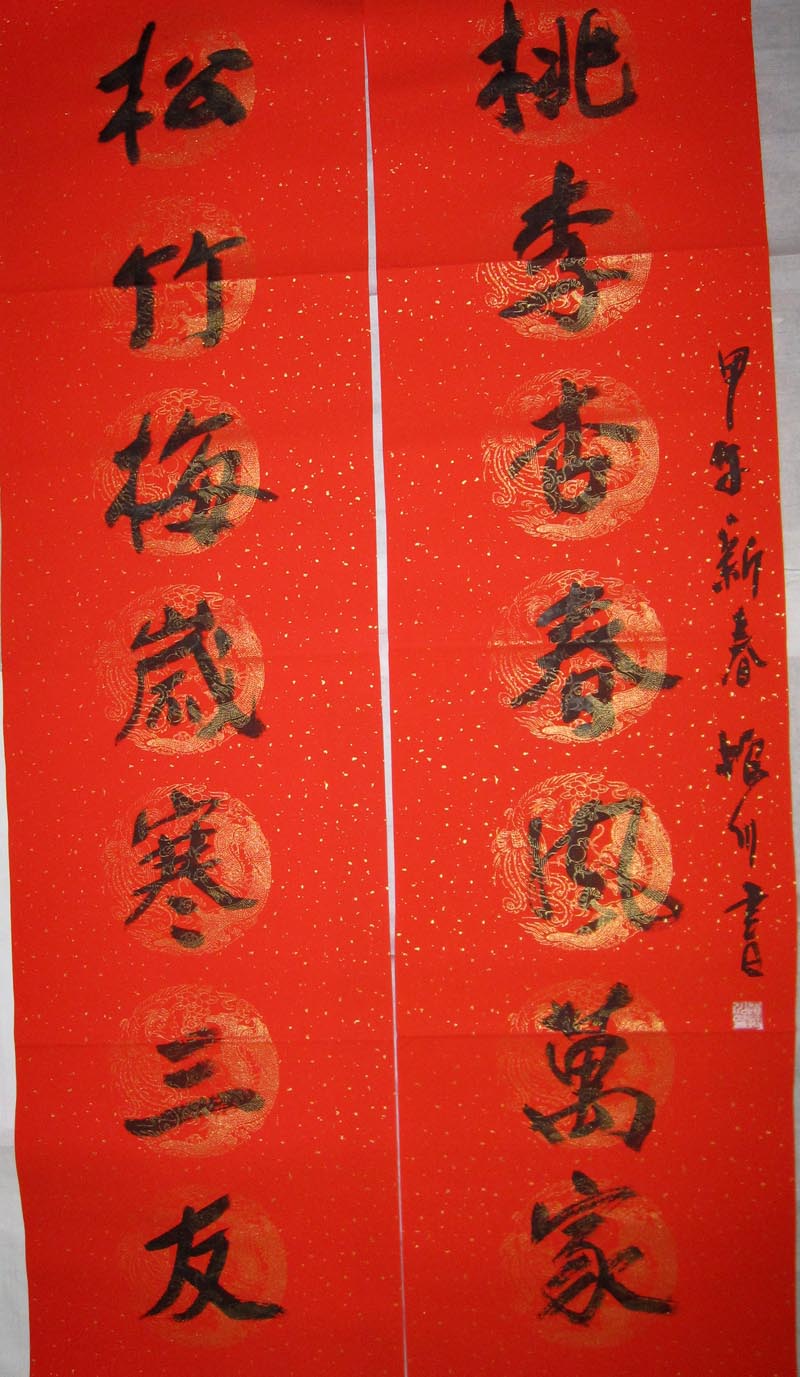 甲午新春振川書
桃李杏春風萬家
松竹梅歲寒三友